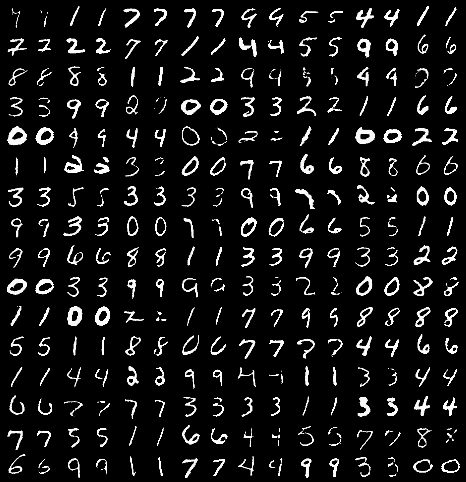 9 9 1 1 7 7 7 7 9 9 5 5 4 4 1 1
7 7 2 2 7 7 1 1 4 4 5 5 9 9 6 6
8 8 8 8 1 1 2 2 9 9 5 5 4 4
3 3 9 9 2 2 0 0 3 3 2 2 1 1 6 6
0 0 9 9 4 4 0 0 2 2 1 1 0 0 2 2
1 1 2 2 3 3 0 0 7 7 6 6 8 8 6 6
3 3 5 5 3 3 3 3 9 9 7 7 2 2 0 0
9 9 3 3 0 0 7 7 0 0 6 6 5 5 1 1
9 9 6 6 8 8 1 1 3 3 9 9 3 3 2 2
0 0 3 3 9 9 9 9 3 3 2 2 0 0 8 8
1 1 0 0 2 2 1 1 7 7 9 9 8 8 8 8
5 5 1 1 8 8 0 0 7 7 7 7 4 4 6 6
1 1 4 4 2 2 9 9 4 4 1 1 3 3 4 4
0 0 7 7 7 7 3 3 3 3 1 1 3 3 4 4
7 7 5 5 1 1 6 6 4 4 5 5 7 7 8 8
6 6 9 9 1 1 7 7 4 4 9 9 3 3 0 0